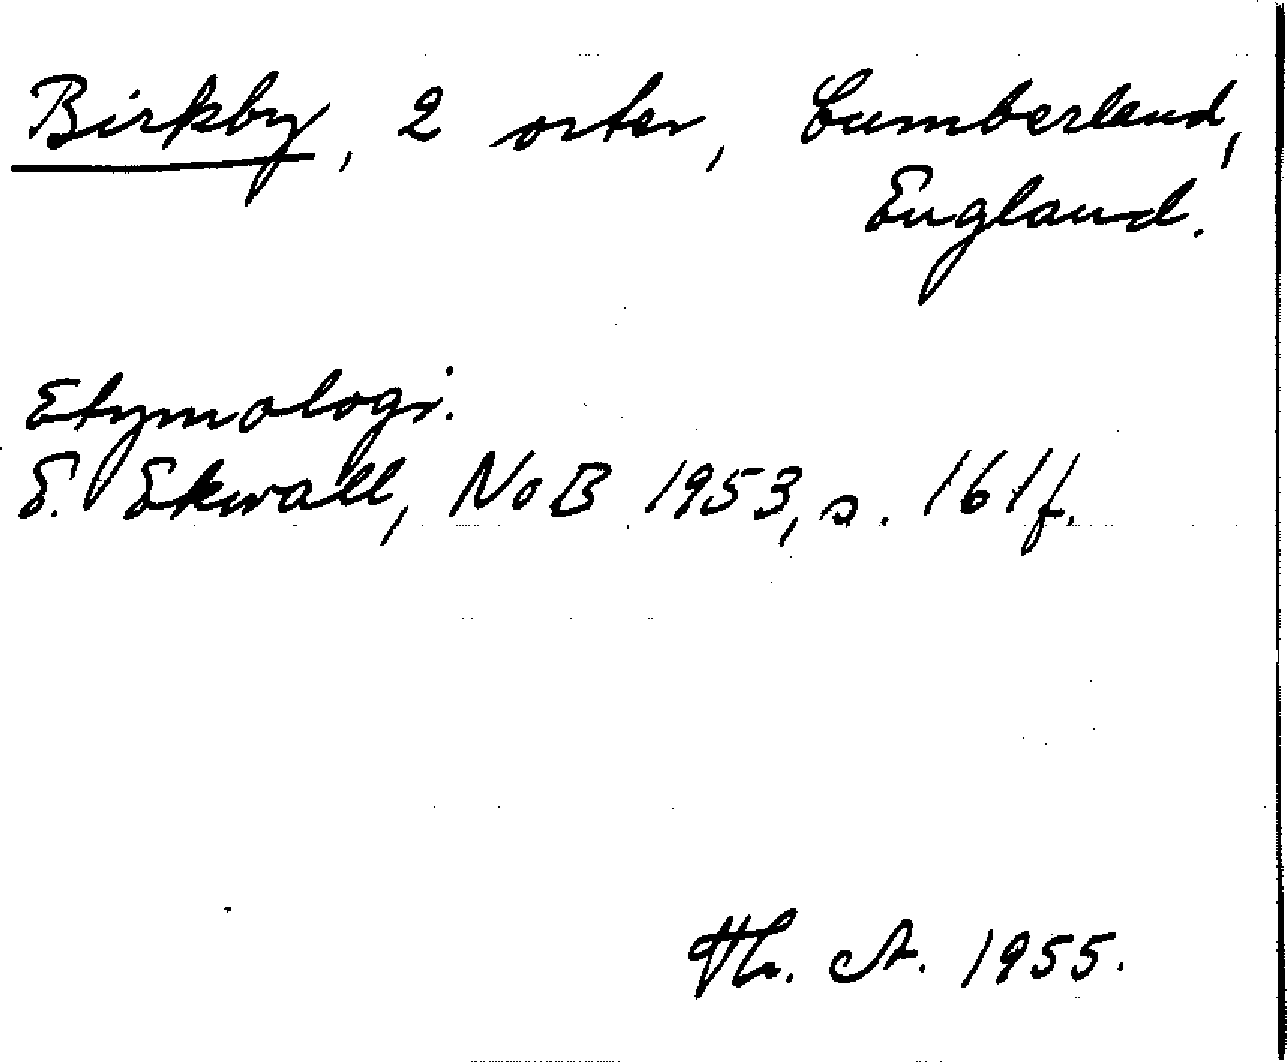 Birkby, 2 orter, Cumberland,
England.
Etymologi.
E. Ekwall, NoB 1953, s. 161f.
Th. A. 1955.